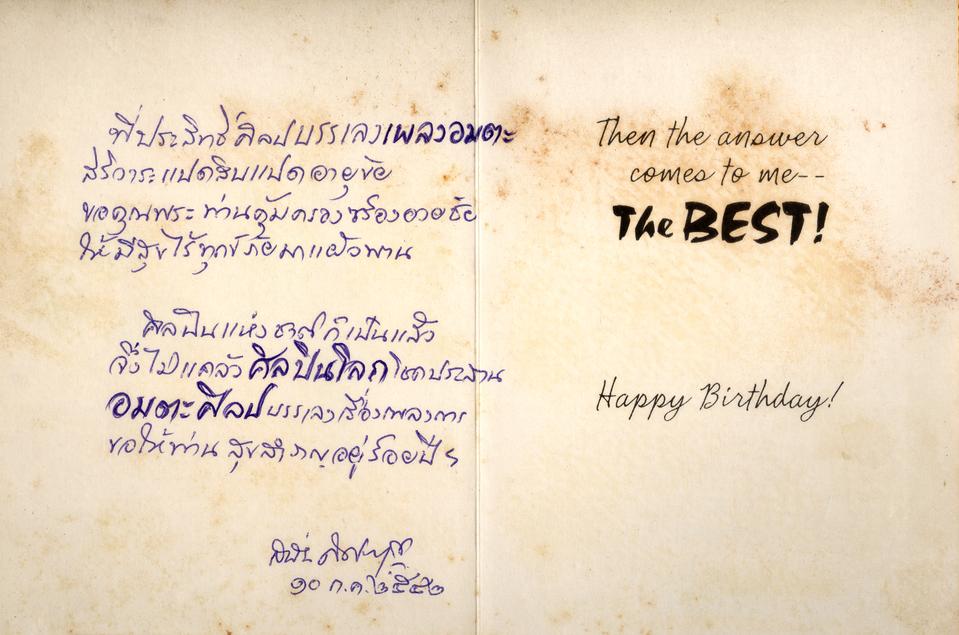 พี่ประสิทธิ์ ศิลปบรรเลงเพลงอมตะ
สิริวาระแปดสิบแปดอายุขัย
ขอคุณพระ ท่านคุ้มครอง
ให้มีสุขไร้ทุกข์ภัยมาแผ้วพาน
ศิลปินแห่งชาติก็เป็นแล้ว
จึงไม่แคล้วศิลปินโลก
อมตะศิลปบรรเลงเรื่องเพลงการ
ขอให้ท่าน สุขสำราญอยู่ร้อยปี ฯ
๑๐ ก.ค. ๒๕๔๒
Then the answer
comes to me--
The BEST!
Happy Birthday!